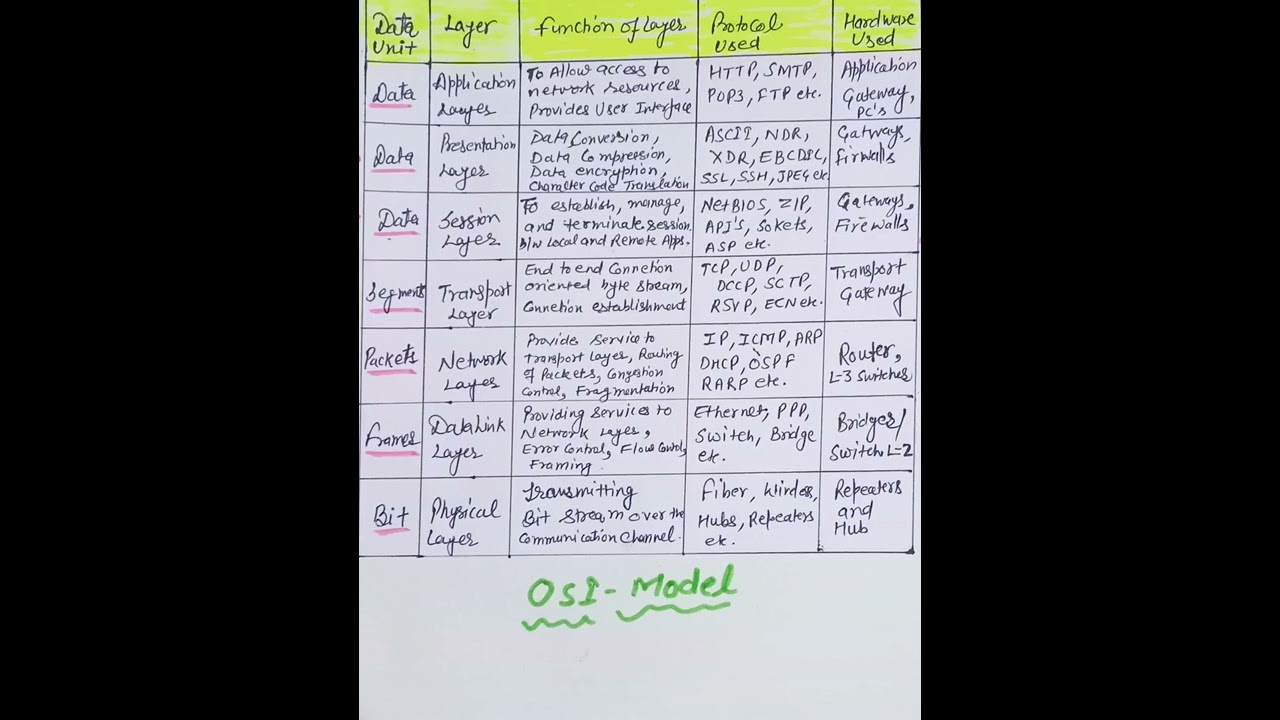 Data Unit
Layer
Function of Layer
Protocol Used
Hardware Used
Data
Application Layer
To Allow access to
network resources,
Provides User Interface
HTTP, SMTP,
POP3, FTP etc.
Application
Gateway,
PC's
Data
Presentation
Layer
Data Conversion,
Data Compression,
Data encryption,
Character Code Translation
ASCII, NDR,
XDR, EBCDIC,
SSL, SSH, JPEG etc.
Gatways,
firwalls
Data
Session
Layer
To establish, manage,
and terminate session
b/w Local and Remote Apps.
NetBIOS, ZIP,
API's, Sokets,
ASP etc.
Gateways,
Firewalls
Segments
Transport
Layer
End to end Connetion
oriented byte stream,
Connetion establishment
TCP, UDP,
DCCP, SCTP,
RSVP, ECN etc.
Transport
Gateway
Packets
Network
Layer
Provides Service to
Transport Layer, Routing
of Packets, Congestion
Control, Fragmentation
IP, ICMP, ARP
DHCP, OSPF
RARP etc.
Router,
L-3 Switches
Frames
Data Link
Layer
Providing Services to
Network Layer,
Error Control, Flow Control,
Framing.
Ethernet, PPP,
Switch, Bridge
etc.
Bridges/
Switch L-2
Bit
Physical
Layer
Transmitting
Bit Stream over the
Communication Channel.
Fiber,
Hubs, Repeaters
etc.
Repeaters
and
Hub
OSI-Model